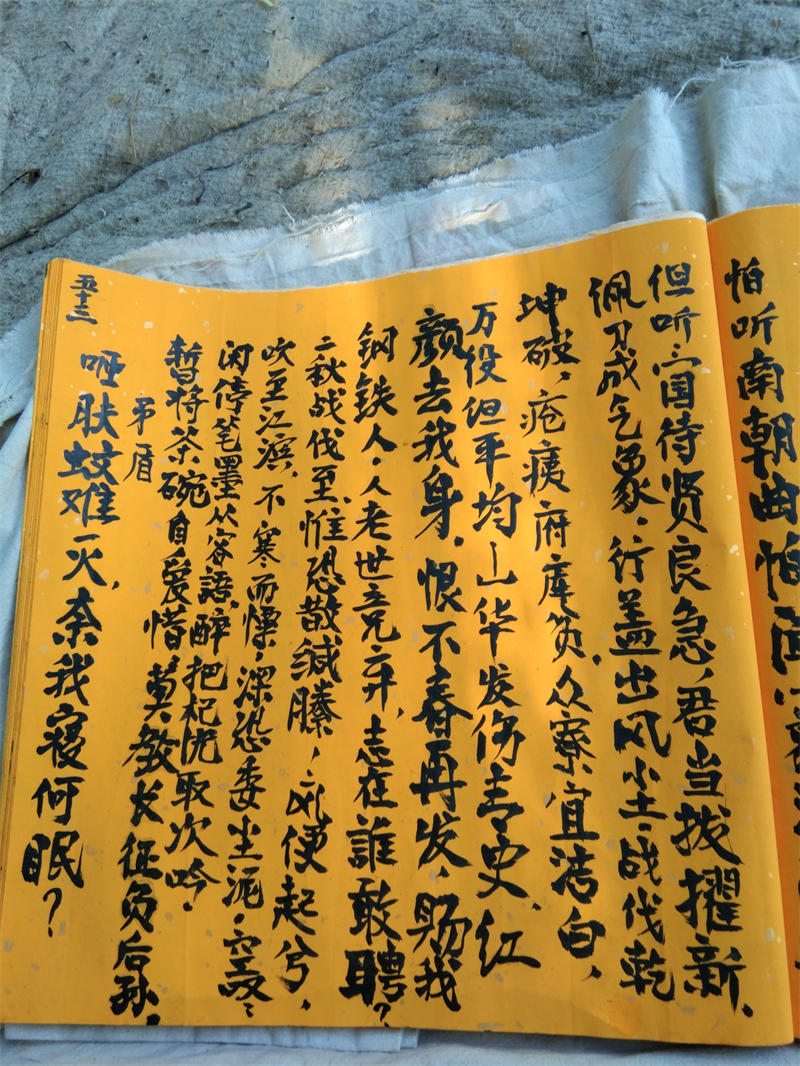 怕听南朝曲怕
但听富待贤良急，君当拔擢新．
佩刀成气象．行盖出风尘．战伐乾
坤破，疮痍府库贫．众寮宜洁白，
万役但平均．山华发伤青史．红
颜去我身．恨不春再发，赐我
钢铁人．人老世意弃，志在誰敢聘？
二秋战伐至，惟恐散缄縢，便起兮，
吹至江滨．不寒而慄，深恐委尘泥．
闲停笔墨从容語，醉把杞优取次吟．
暂将茶碗自爱惜 莫教长征负后孙．
矛盾
咂肤蚊难灭，奈我寝何眠？
五十三